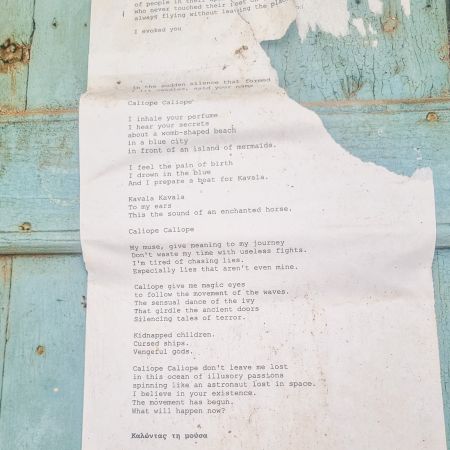 of people in their
who never touched their feet
always flying without leaving the place
I evoked you
in the sudden silence that formed
said your name
Caliope Caliope
I inhale your perfume
I hear your secrets
about a womb-shaped beach
in a blue city
in front of an island of mermaids.
I feel the pain of birth
I drown in the blue
And I prepare a boat for Kavala.
Kavala Kavala
To my ears
This the sound of an enchanted horse.
Caliope Caliope
My muse, give meaning to my journey
Don't waste my time with useless fights.
I'm tired of chasing lies.
Especially lies that aren't even mine.
Caliope give me magic eyes
to follow the movement of the waves.
The sensual dance of the ivy
That girdle the ancient doors
Silencing tales of terror.
Kidnapped children.
Cursed ships.
Vengeful gods.
Caliope Caliope don't leave me lost
in this ocean of illusory passions
spinning like an astronaut lost in space.
I believe in your existence.
The movement has begun.
What will happen now?
Καλώντας τη μούσα